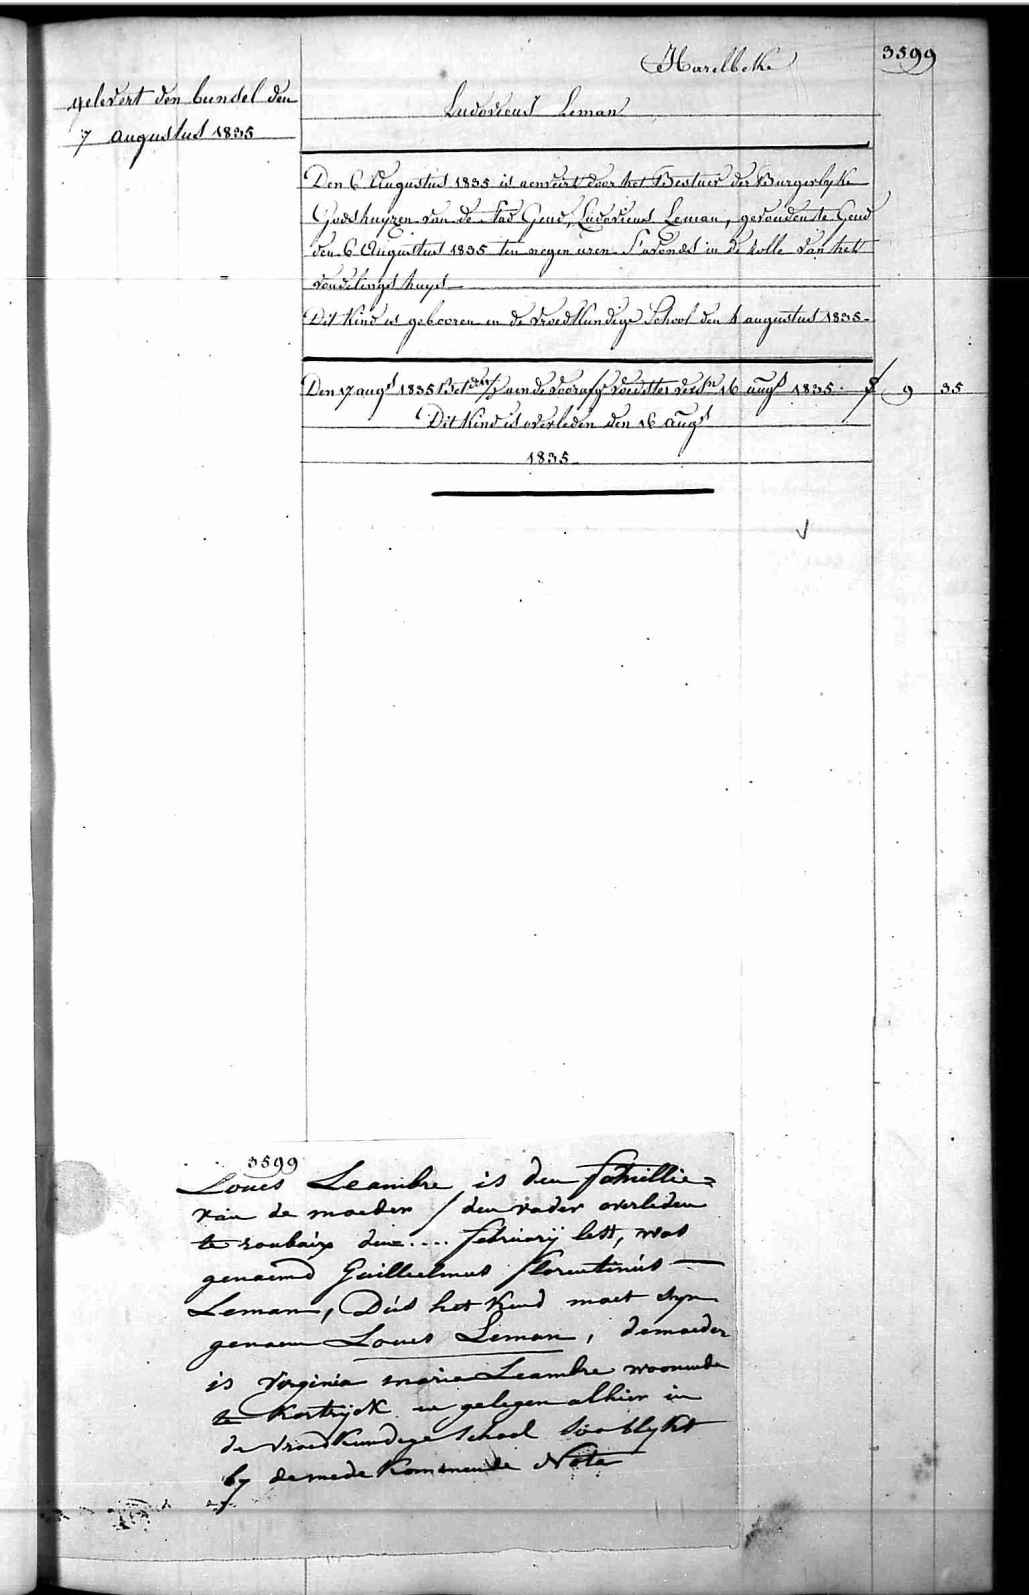 Harelbeke
3599
gelevert den bundel den
7 augustus 1835
Ludovicus Leman
Den 6 Augustus 1835 is aenveirt door het Bestuer der Burgerlyke
Godshuyzen van de Stad Gend, Ludovicus Leman, gevonden te Gend
den 6 Augustus 1835 ten negen uren S'avonds in de rolle van het
vondelingshuys
Dit Kind is gebooren in de vroedkundige School den 4 augustus 1835
Den 17 augs 1835 aen de voedster 16 augs 1835. 9 35
Dit Kind is overleden den 16 augs
1835
3599
Louis Leambre is den famillie=
van de moeder / den vader overleden
te roubaix den .... februarij lest, was
genaemd Guillielmus florentinus
Leman, Dus het Kind moet syn
genaem Louis Leman, demoeder
is Virginia maria Leambre woonende
te Kortryck en gelegen alhier in
de vroedkundige school soo blykt
by demede Kommende Nota